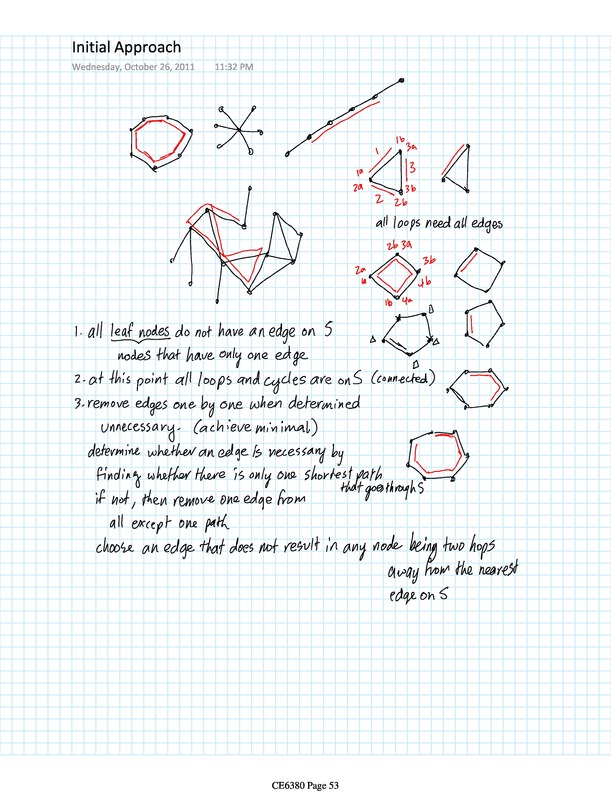 Initial Approach
Wednesday, October 26, 2011 11:32 PM
1b
3a
1
1a
3
2a
3b
2
2b
all loops need all edges
2b 3a
3b
2a
4b
1b 4a
1. all leaf nodes do not have an edge on S
nodes that have only one edge
2. at this point all loops and cycles are on S (connected)
3. remove edges one by one when determined
unnecessary. (achieve minimal)
determine whether an edge is necessary by
finding whether there is only one shortest path
that goes through S
if not, then remove one edge from
all except one path
choose an edge that does not result in any node being two hops
away from the nearest
edge on S
CE6380 Page 53